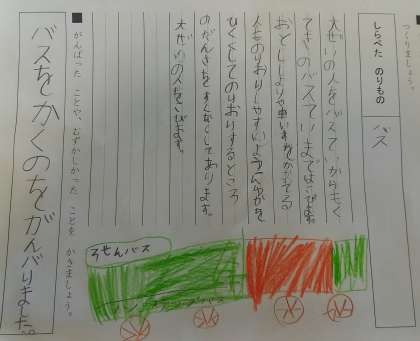 つくりましょう。
しらべた のりもの
バス
大ぜいの人をバスていからもく
てきちのバスていまではこびます。
おとしよりや車いすをつかってる
人ものりおりしやすいようにゆかを
ひくくしてのりおりするところ
のだんさをすくなくしてあります。
大ぜいの人をはこびます。
ろせんバス
■がんばった ことや、むずかしかった ことを かきましょう。
バスをかくのをがんバりました。